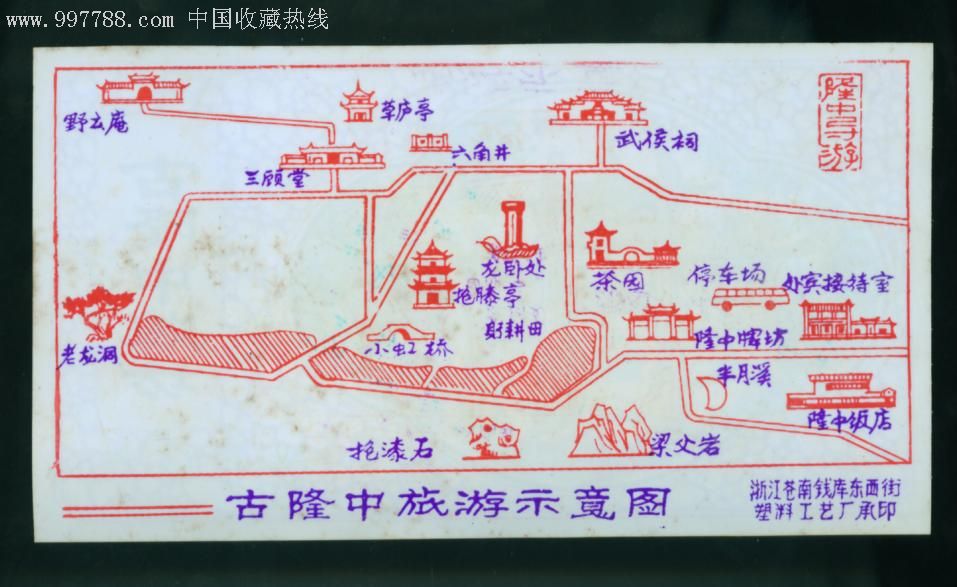 www.997788.com 中国收藏热线
隆中导游
野云庵
草庐亭
六角井
武侯祠
三顾堂
龙卧处
抱膝亭
茶园
停车场
外宾接待室
老龙洞
小虹桥
躬耕田
隆中牌坊
半月溪
隆中饭店
抱漆石
梁父岩
古隆中旅游示意图
浙江苍南钱库东西街
塑料工艺厂承印